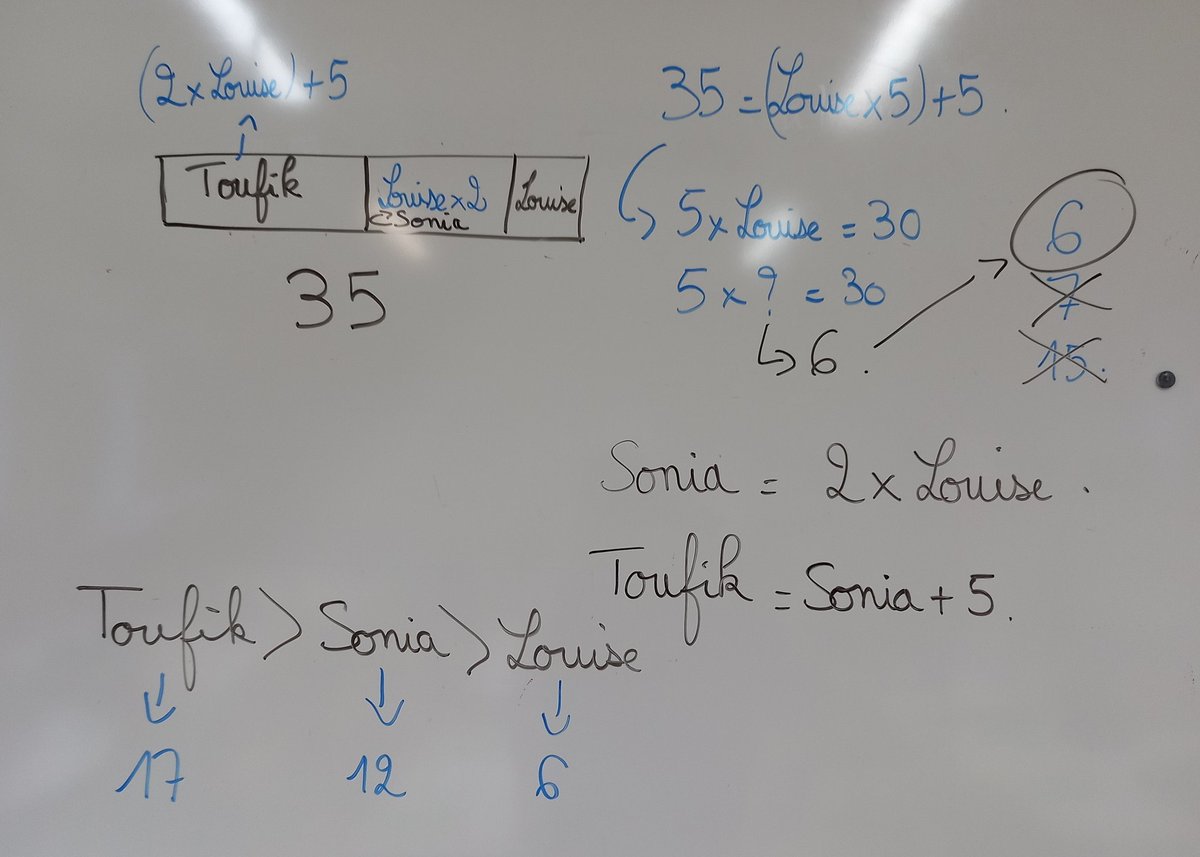 (2 x Louise) + 5
Toufik
Louise x 2
Sonia
Louise
35
35 = (Louise x 5) + 5.
5 x Louise = 30
5 x ? = 30
6.
6
7
15.
Sonia = 2 x Louise.
Toufik = Sonia + 5.
Toufik > Sonia > Louise
17 12 6